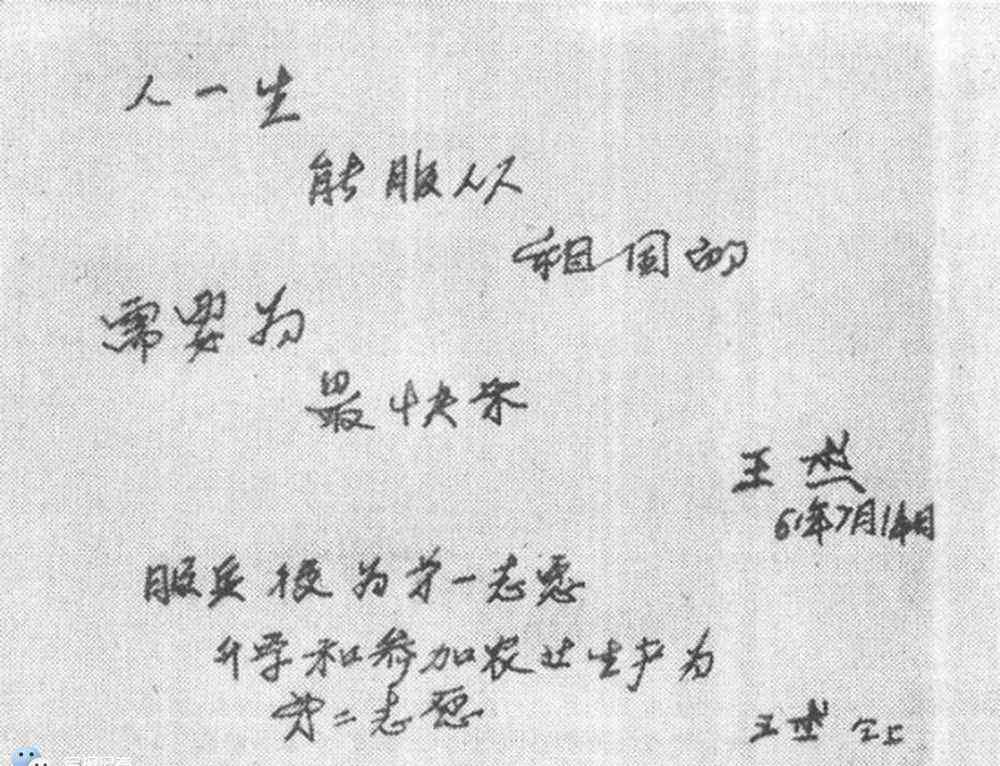 人一生
能服从
祖国的
需要为
最快乐
王杰
61年7月14日
服兵役为第一志愿
升学和参加农业生产为
第二志愿
王杰 仝上